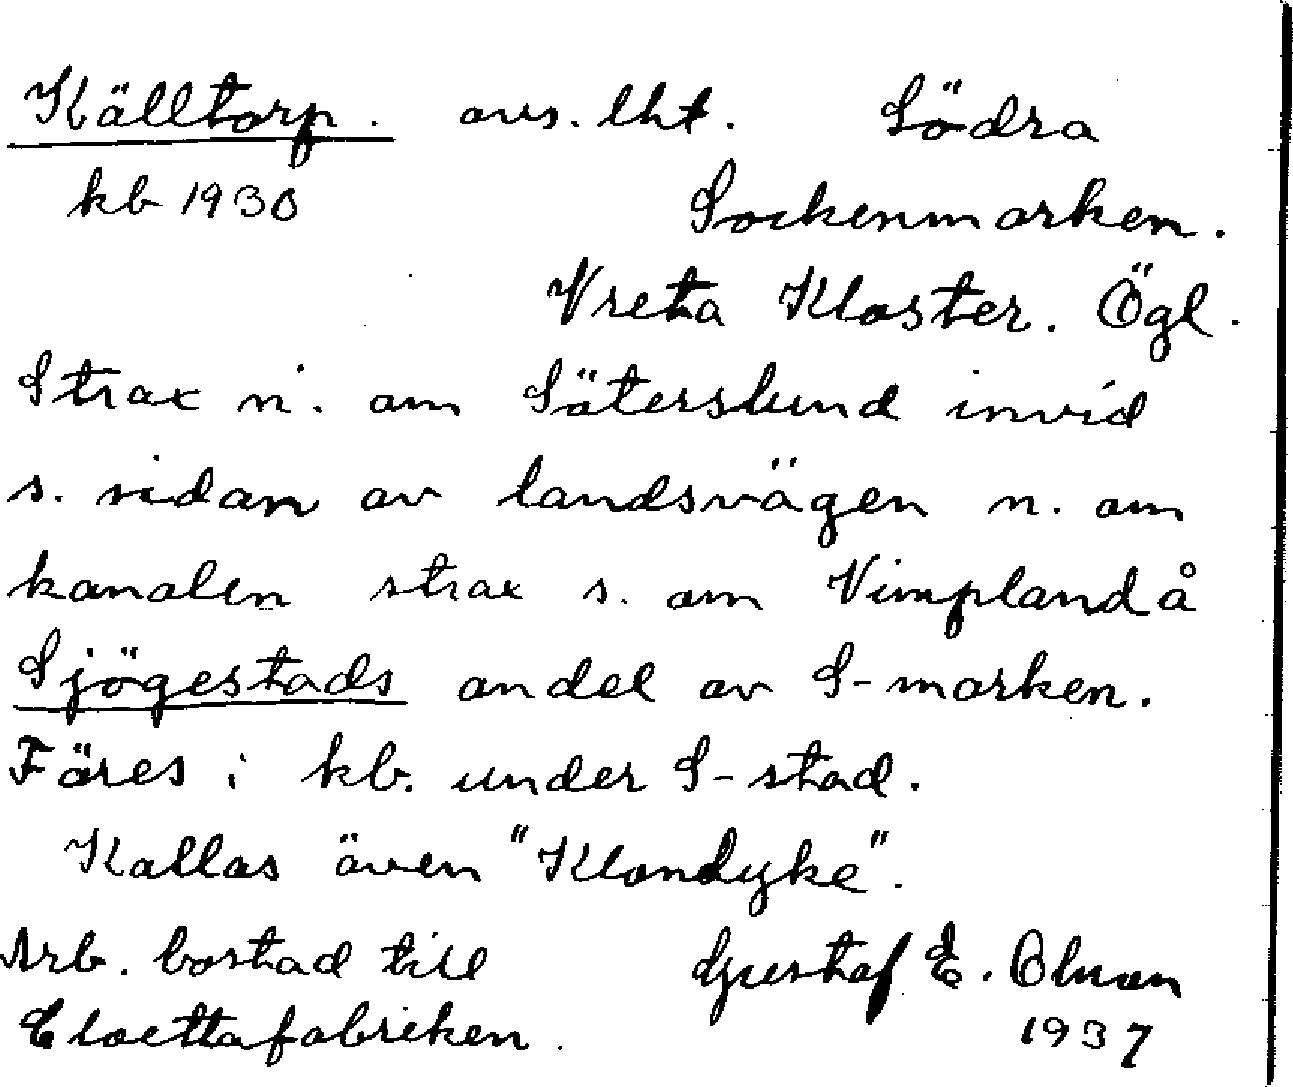 Källtorp. avs. lht. Södra
kb 1930 Sockenmarken.
Vreta Kloster. Ögl.
Strax n. om Säterslund invid
s. sidan av landsvägen n. om
kanalen strax s. om Vimplandå
Sjögestads andel av S-marken.
Föres i kb. under S-stad.
Kallas även "Klondyke".
Arb. bostad till Gustaf E. Olsson
Cloettafabriken. 1937